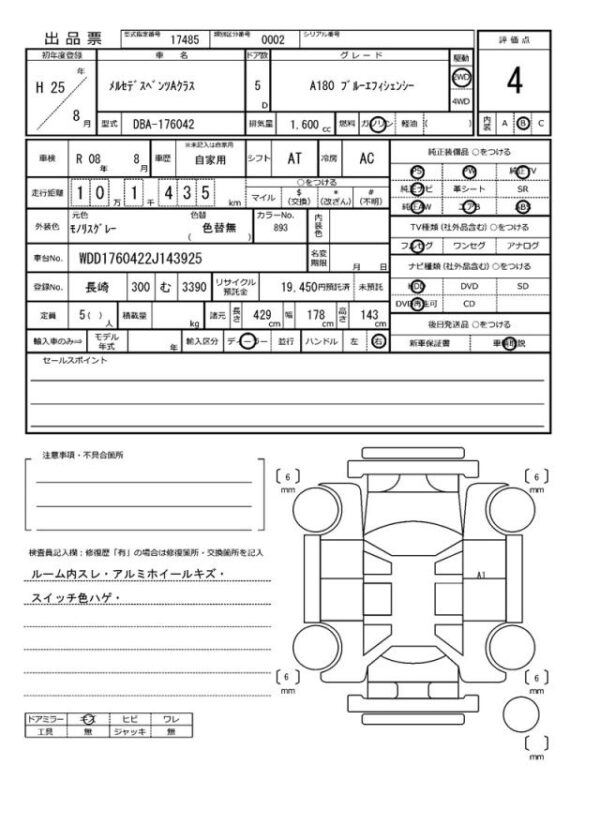 出品票 型式指定番号 17485 類別区分番号 0002 シリアル番号
初年度登録 車名 ドア数 グレード 駆動 評価点
H 25 年 8 月 メルセデスベンツAクラス 5 D A180 ブルーエフィシェンシー 2WD 4WD 4
型式 DBA-176042 排気量 1,600 cc 燃料 ガソリン 軽油 ( ) 内装 A B C
車検 R 08 年 8 月 車歴 ※未記入は自家用 自家用 シフト AT 冷房 AC 純正装備品 ○をつける
PS PW 純正TV
走行距離 1 0 万 1 千 4 3 5 km ○をつける マイル $ (交換) * (改ざん) # (不明) 純正ナビ 革シート SR
純正AW エアB ABS
外装色 元色 モノリスグレー 色替 ( 色替無 ) カラーNo. 893 内装色 TV種類 (社外品含む) ○をつける
フルセグ ワンセグ アナログ
車台No. WDD1760422J143925 名変期限 月 日 ナビ種類 (社外品含む) ○をつける
登録No. 長崎 300 む 3390 リサイクル預託金 19,450円預託済 未預託 HDD DVD SD
DVD再生可 CD
定員 5 ( ) 人 積載量 kg 諸元 長さ 429 cm 幅 178 cm 高さ 143 cm 後日発送品 ○をつける
輸入車のみ⇒ モデル年式 年 輸入区分 ディーラー 並行 ハンドル 左 右 新車保証書 車輌取説
セールスポイント
注意事項・不具合箇所
( 6 ) mm
( 6 ) mm
検査員記入欄:修復歴「有」の場合は修復箇所・交換箇所を記入
ルーム内スレ・アルミホイールキズ・
A1
スイッチ色ハゲ・
( 6 ) mm
( 6 ) mm
ドアミラー キズ ヒビ ワレ
工具 無 ジャッキ 無
( ) mm